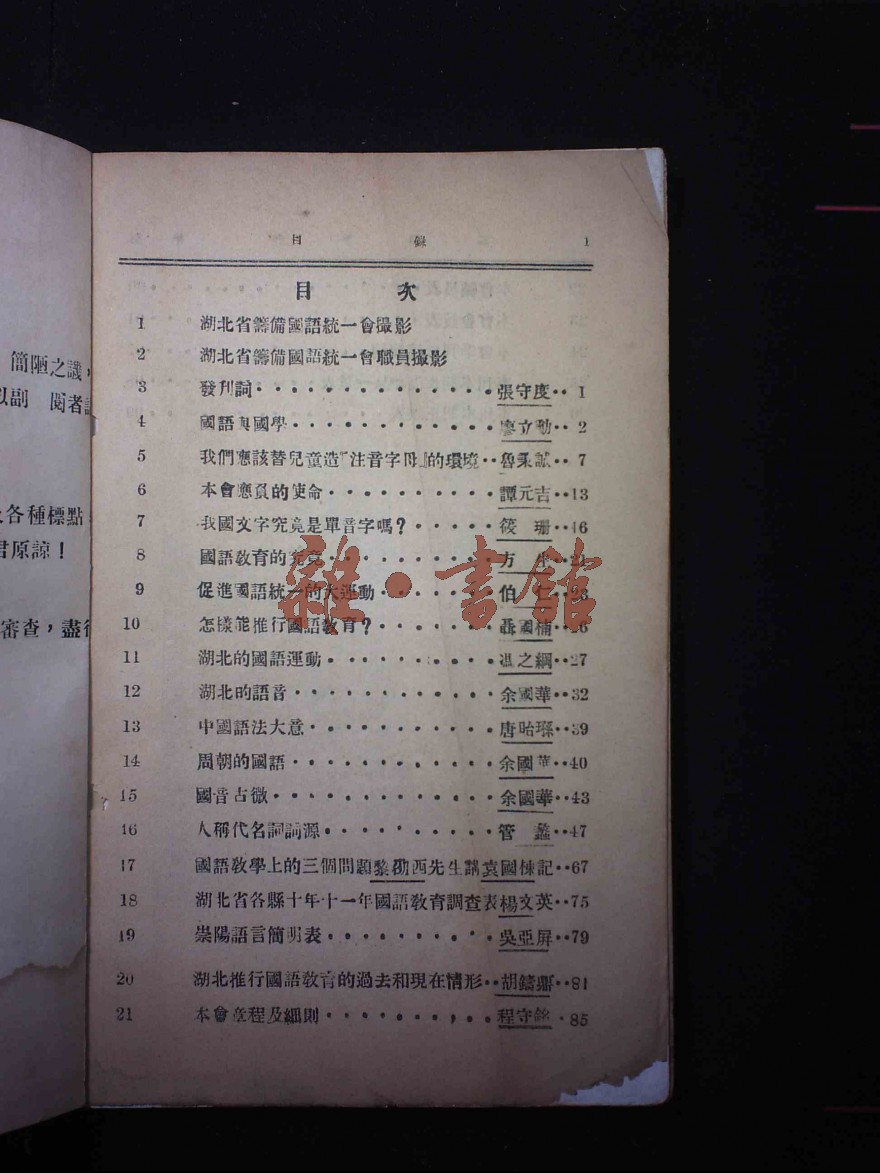 目錄 1
目次
1 湖北省籌備國語統一會撮影
2 湖北省籌備國語統一會職員撮影
3 發刋詞 張守度 1
4 國語與國學 廖立勛 2
5 我們應該替兒童造『注音字母』的環境 魯秉誠 7
6 本會應負的使命 譚元吉 13
7 我國文字究竟是單音字嗎? 筱珊 16
8 國語教育的究竟 方 21
9 促進國語統一的大運動 伯 23
10 怎樣能推行國語教育? 聶國楠 26
11 湖北的國語運動 馮之綱 27
12 湖北的語音 余國華 32
13 中國語法大意 唐貽 39
14 周朝的國語 余國華 40
15 國音古微 余國華 43
16 人稱代名詞詞源 管蠡 47
17 國語教學上的三個問題 黎劭西先生講袁國棟記 67
18 湖北省各縣十年十一年國語教育調查表 楊文英 75
19 崇陽語言簡明表 吳亞屏 79
20 湖北推行國語教育的過去和現在情形 胡鑄鼎 81
21 本會章程及細則 程守銘 85
簡陋之譏,
以副 閱者
各種標點
君原諒!
審查,盡
雜·書館